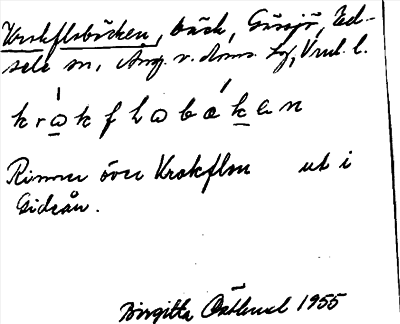 Krokflobäcken, bäck, Gussjö, Ted-
sele sn, Ång. v.doms. Lg, Vrul. l.
krokflobäken
Rinner över Krokflon ut i
Gideån.
Birgitta Östlund 1955